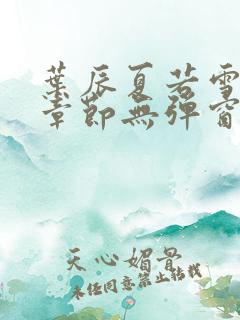 葉辰夏若雪
章節無彈窗
天心媚骨
未经同意禁止转载